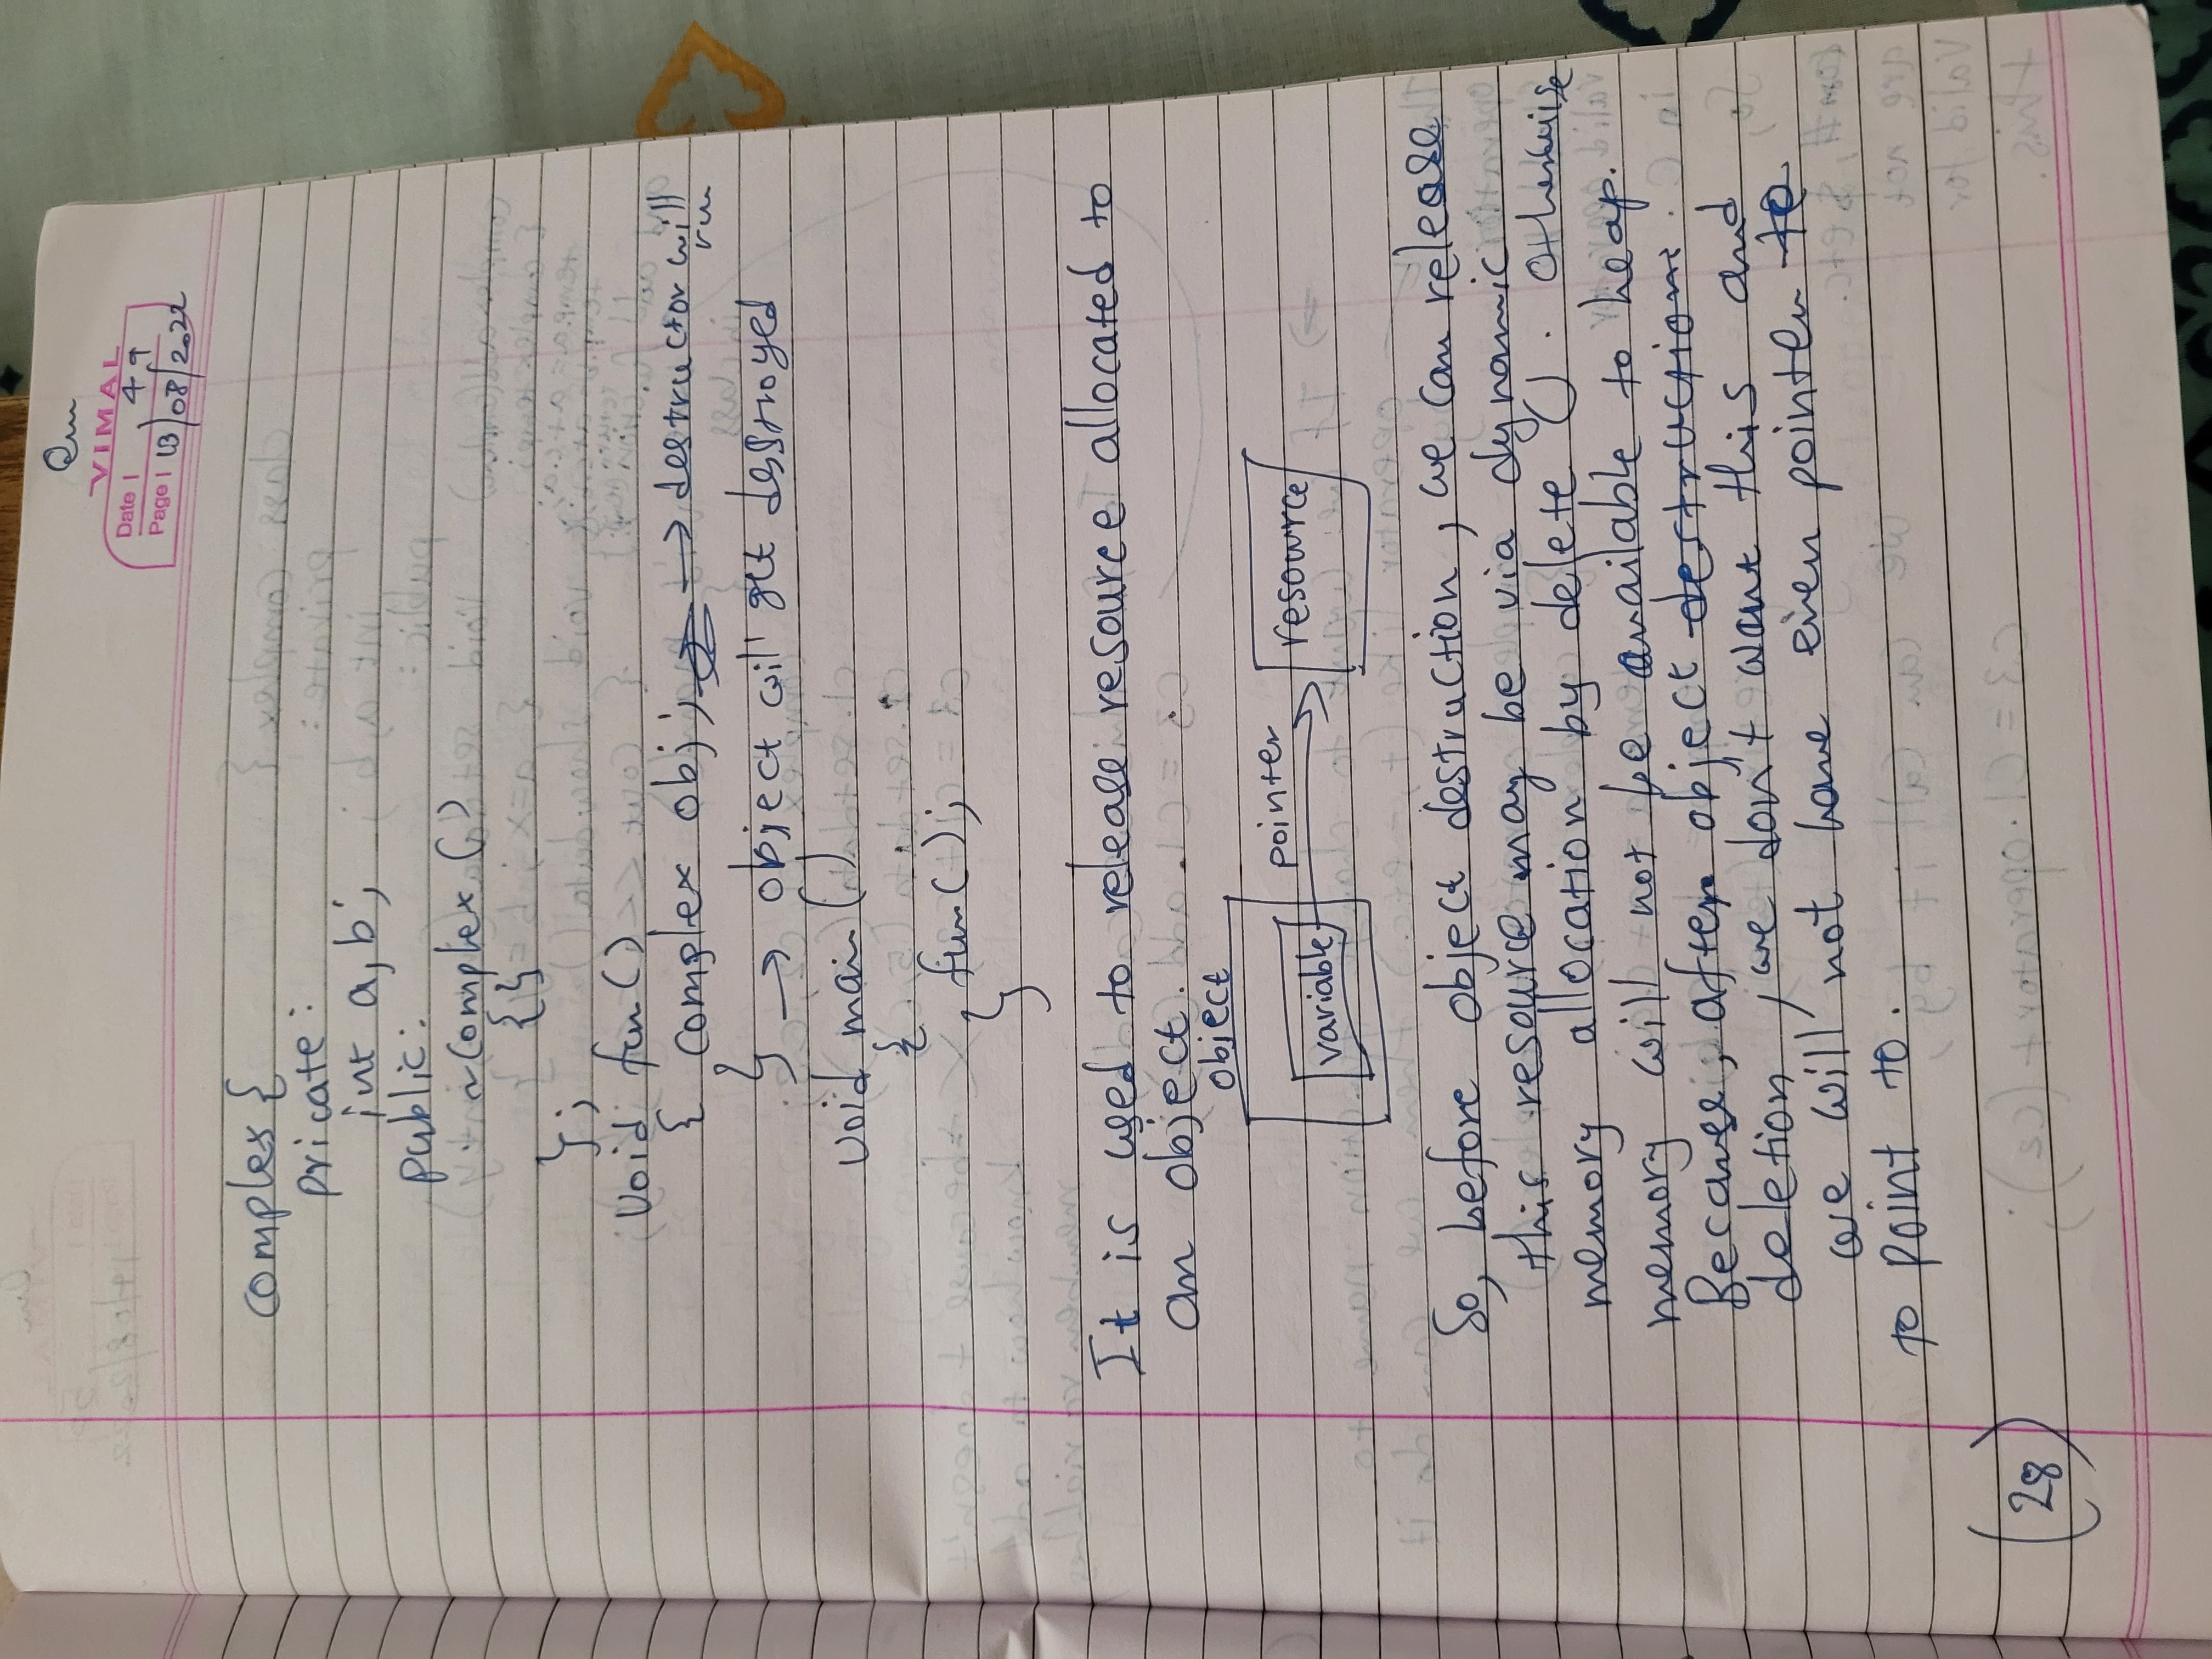 Om
VIMAL
Date 49
Page 13/08/2022
complex {
pricate :
int a, b ;
public :
~complex ()
{}
} ;
void fun ()
{ complex obj ; → destructor will
run
} → object will get destroyed
void main ()
{
fun () ;
}
It is used to release resource allocated to
an object.
object
variable pointer resource
So, before object destruction, we can release
this resource may be via dynamic
memory allocation by delete (). Otherwise
memory will not be available to heap.
Because, after object destruction
deletion, we don't want this and
we will not have even pointer to
to point to.
(28)